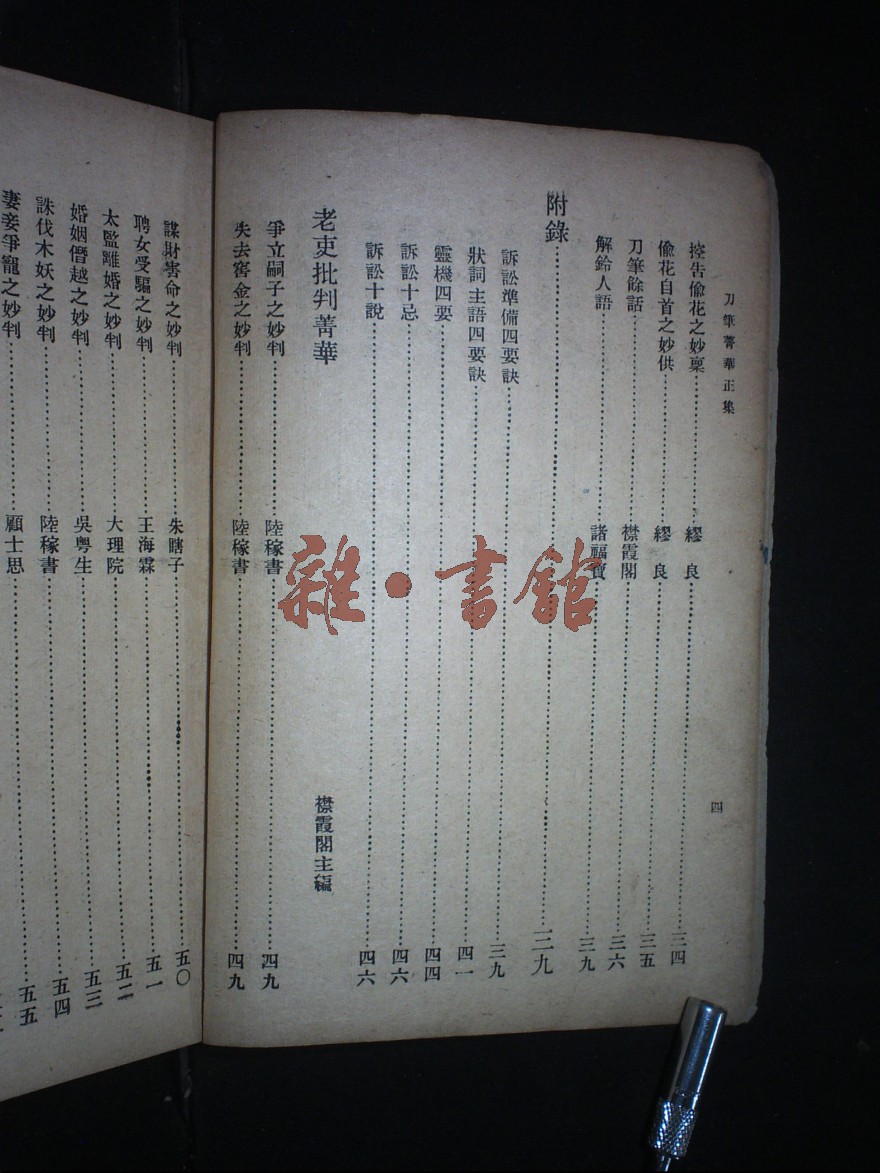 刀筆菁華正集
四
控告偷花之妙稟 繆良 三四
偷花自首之妙供 繆良 三五
刀筆餘話 襟霞閣 三六
解鈴人語 諸福寶 三九
附錄 三九
訴訟準備四要訣 三九
狀詞主語四要訣 四一
靈機四要 四四
訴訟十忌 四六
訴訟十說 四六
老吏批判菁華 襟霞閣主編
爭立嗣子之妙判 陸稼書 四九
失去窖金之妙判 陸稼書 四九
謀財害命之妙判 朱瞎子 五〇
聘女受騙之妙判 王海霖 五一
太監離婚之妙判 大理院 五二
婚姻僭越之妙判 吳粵生 五三
誅伐木妖之妙判 陸稼書 五四
妻妾爭寵之妙判 顧士思 五五
雜·書館